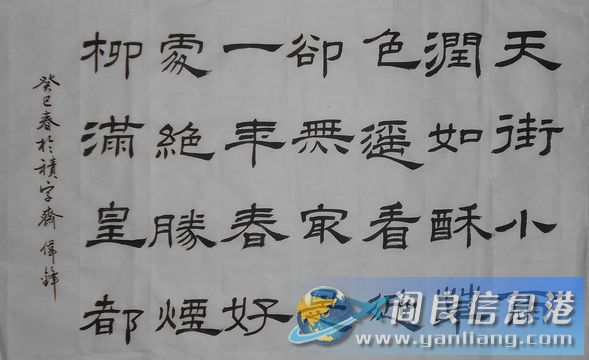 天街小雨
潤如酥草
色遥看近
卻無冣是
一年春好
處絕勝煙
柳滿皇都
癸巳春於積字齋 偉鋒
阎良信息港
www.yanliang.com